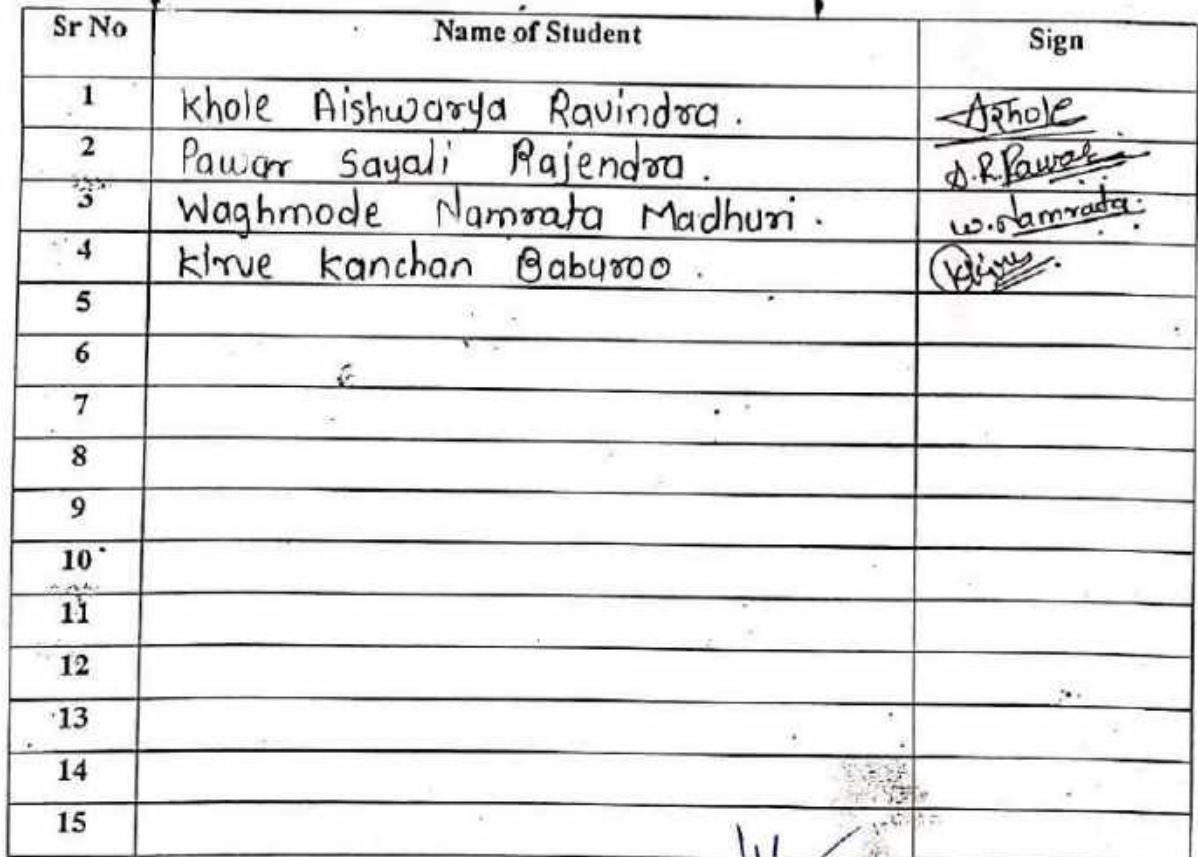 Sr No Name of Student Sign
1 Khole Aishwarya Ravindra. AKhole
2 Pawar Sayali Rajendra. S.R.Pawar
3 Waghmode Namrata Madhuri. W.Namrata.
4 Kirve Kanchan Baburao.
5
6
7
8
9
10
11
12
13
14
15